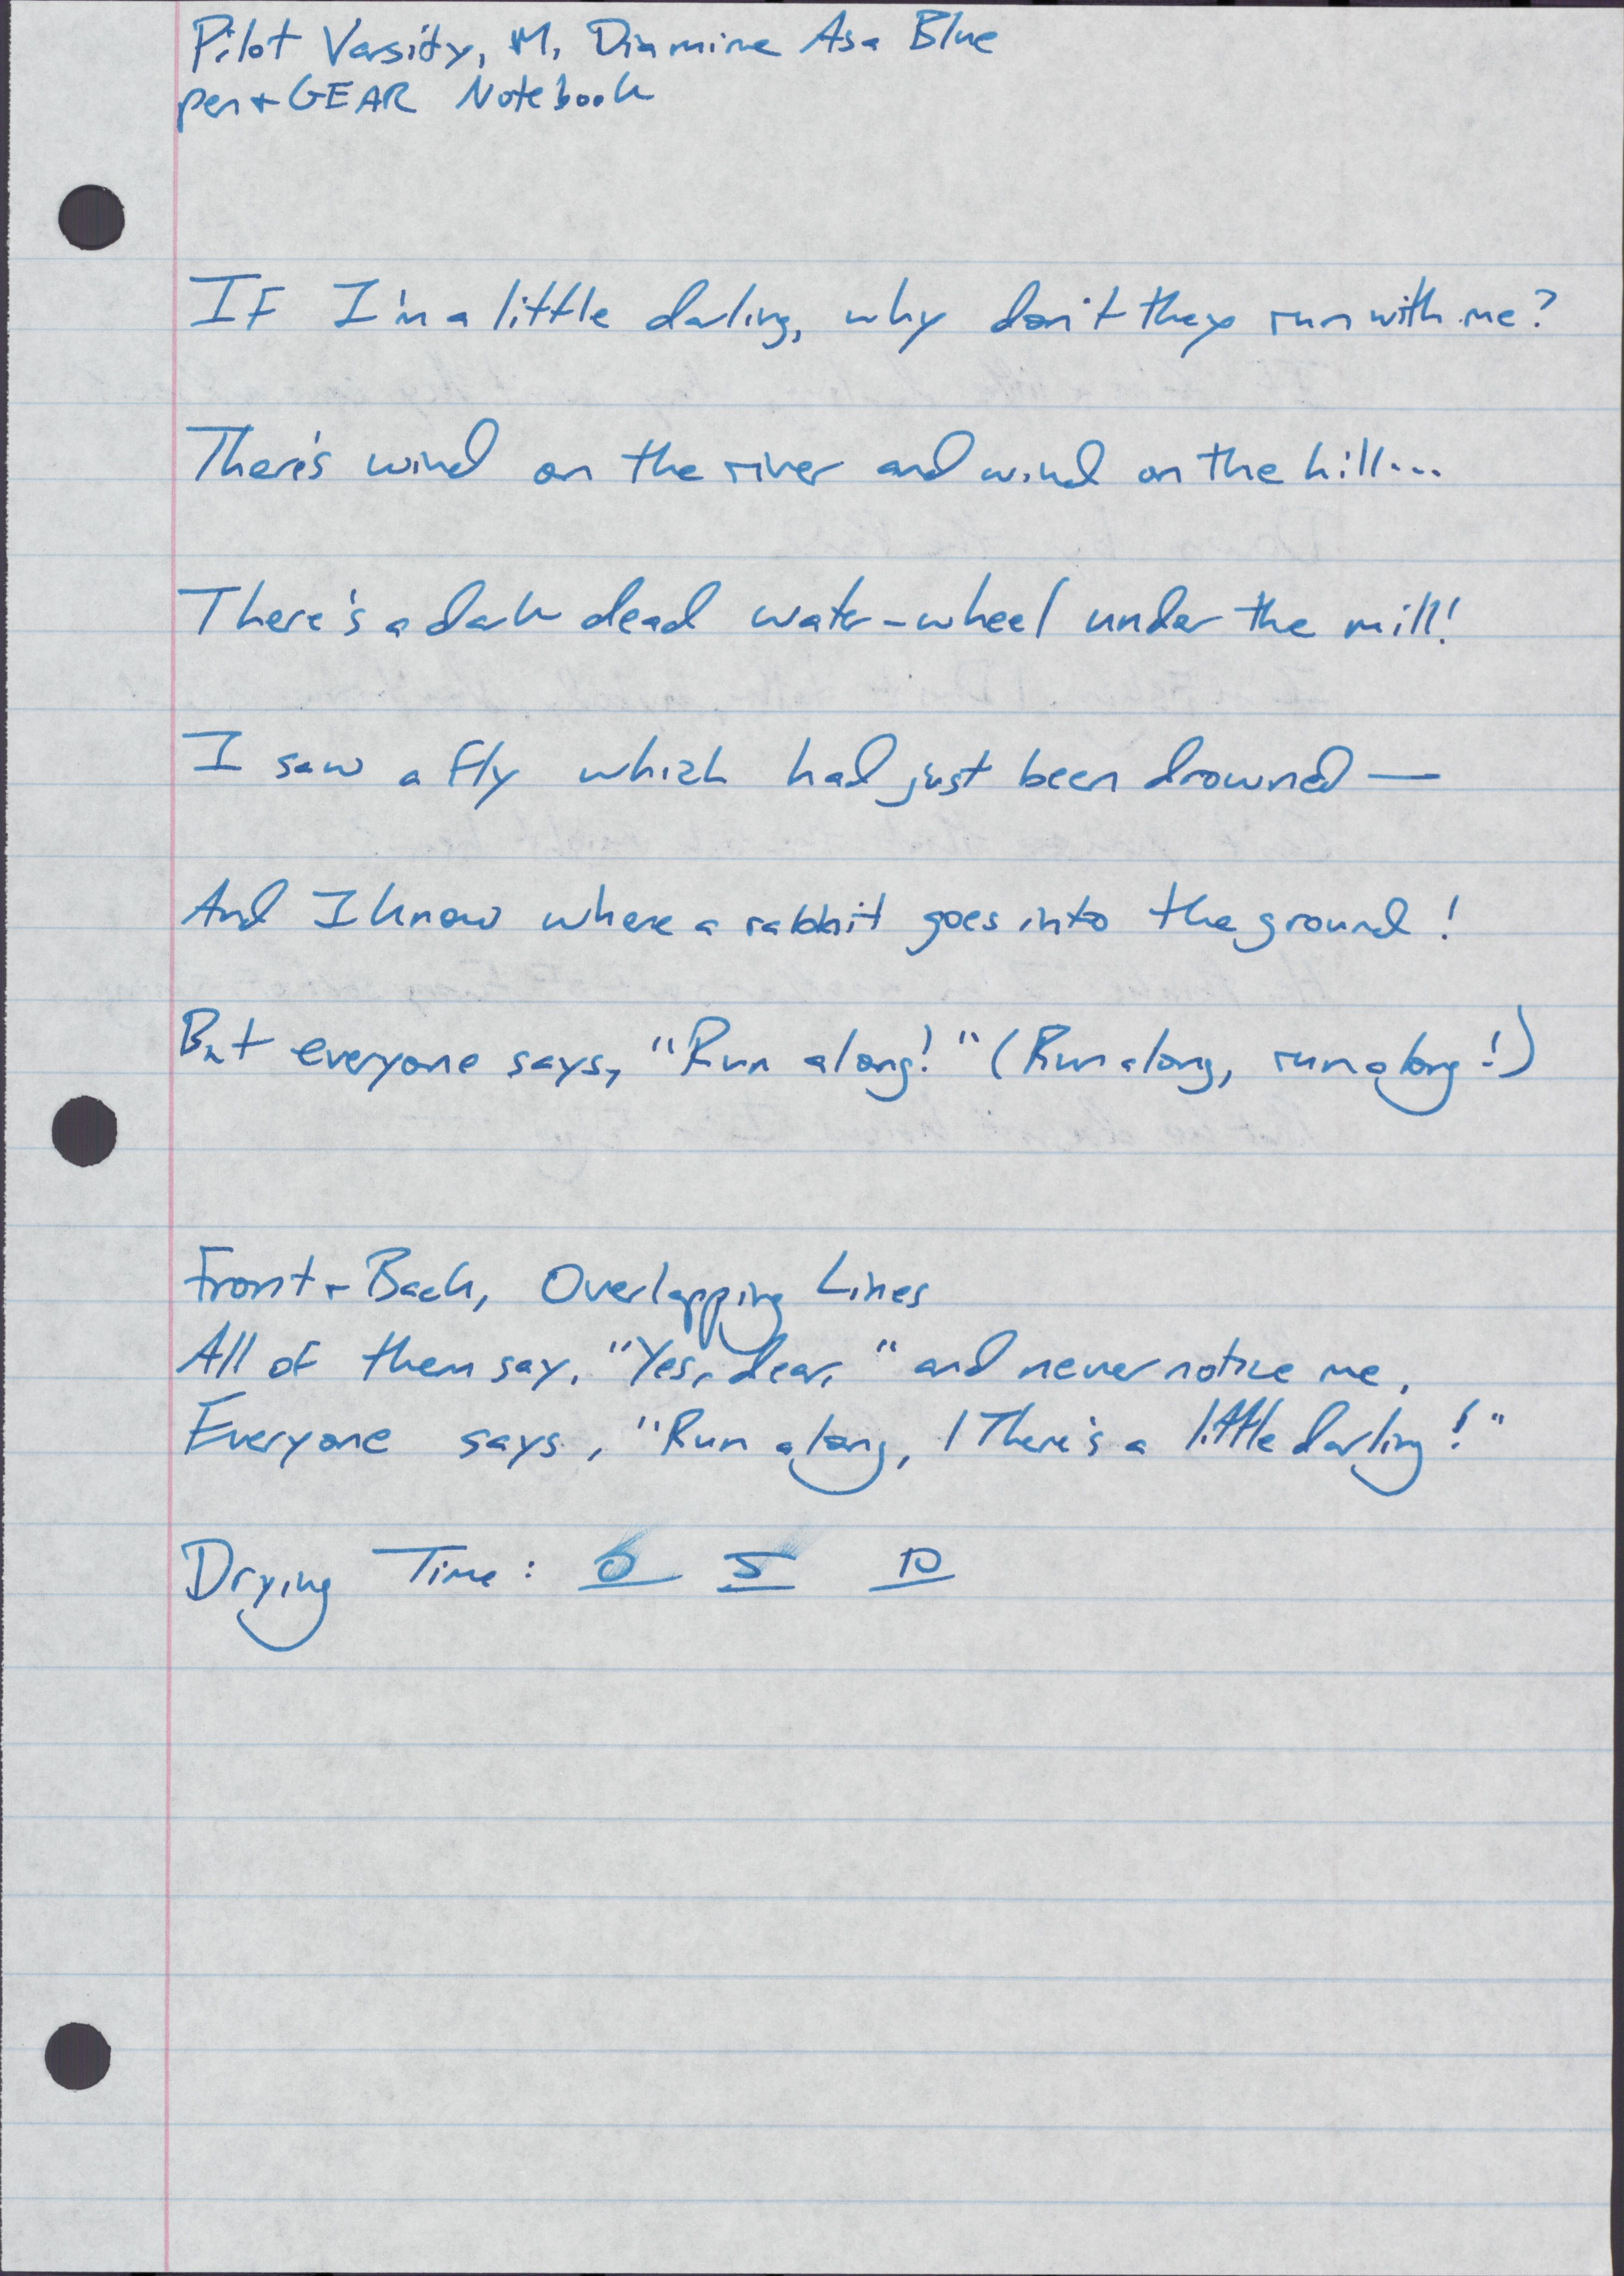 Pilot Varsity, M, Diamine Asa Blue
pen+GEAR Notebook
If I'm a little darling, why don't they run with me?
There's wind on the river and wind on the hill...
There's a dark dead water-wheel under the mill!
I saw a fly which had just been drowned—
And I know where a rabbit goes into the ground!
But everyone says, "Run along!" (Run along, run along!)
Front + Back, Overlapping Lines
All of them say, "Yes, dear," and never notice me.
Everyone says, "Run along, / There's a little darling!"
Drying Time: 0 5 10